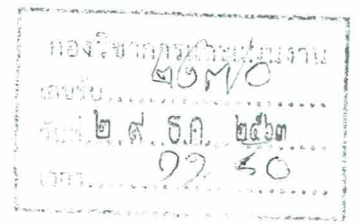 กองวิชาการและแผนงาน
เลขรับ ๒๒๗๐
วันที่ ๒ ๙ ธ.ค. ๒๕๖๓
เวลา